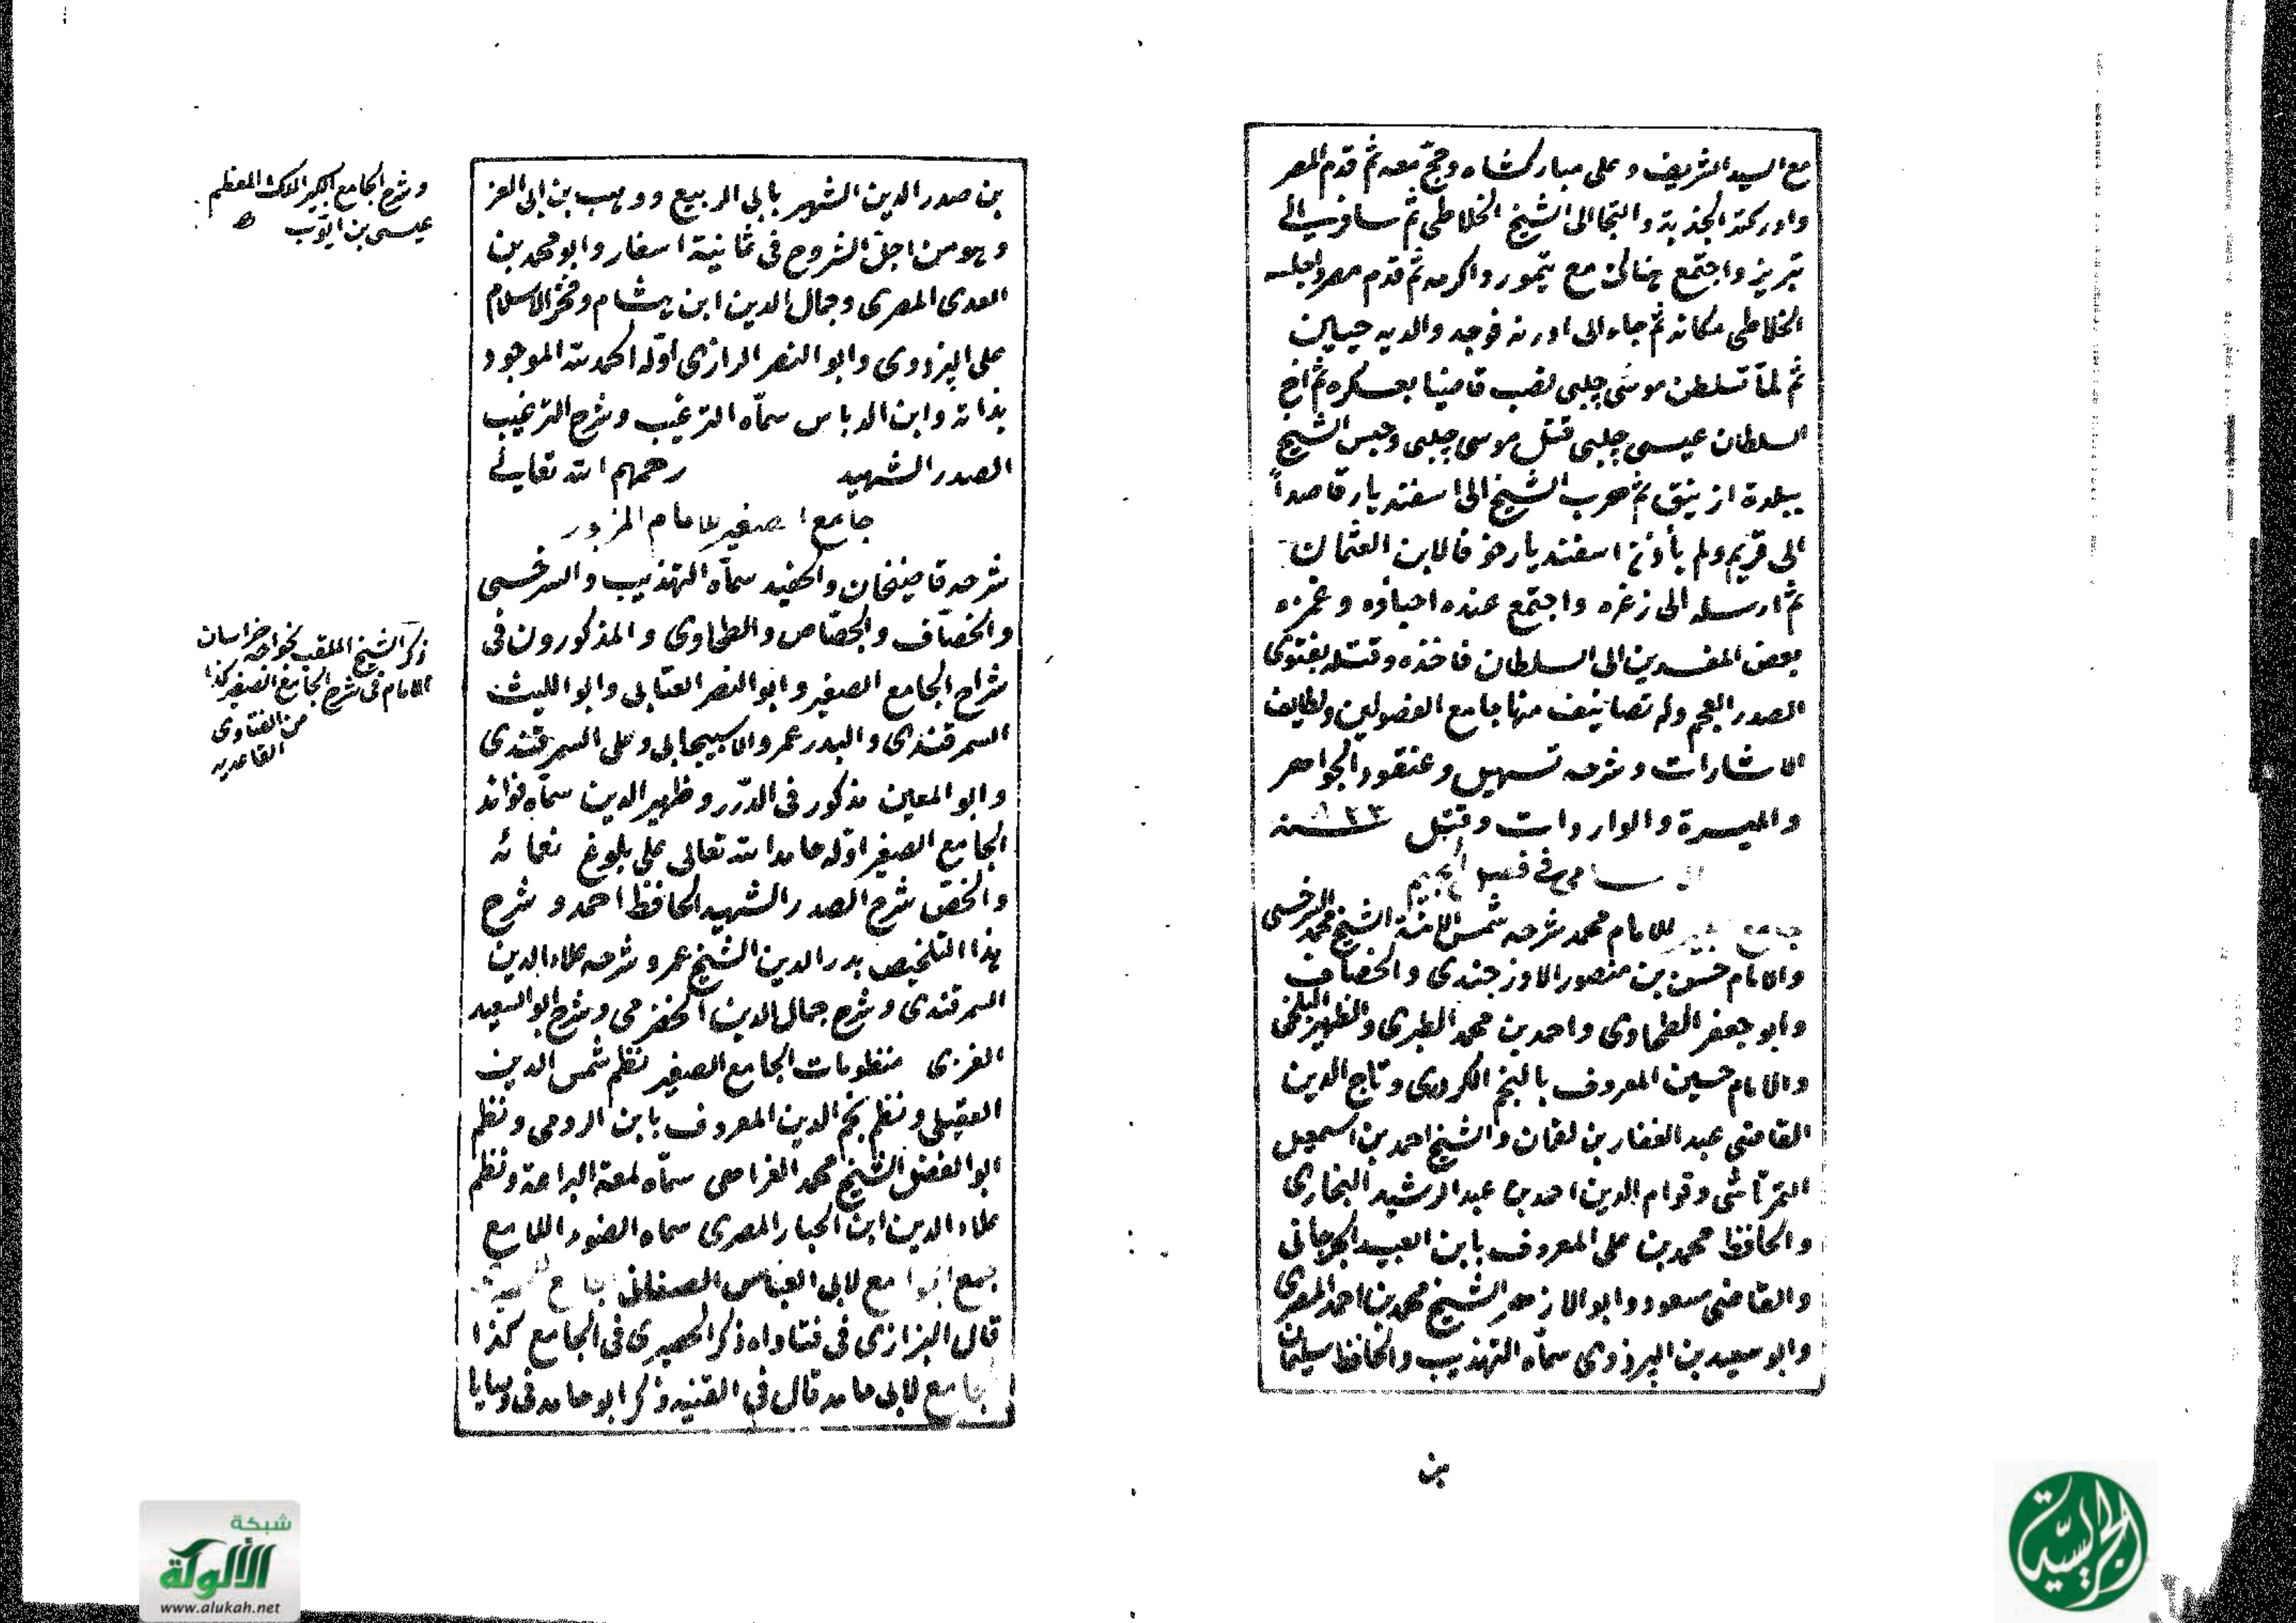 مع السيد الشريف وعلى مباركشاه وحج معه ثم قدم المصر
وادركته الجذبة والتجا الى الشيخ الخلاطى ثم سافر الى
تبريز واجتمع هناك مع تيمور واكرمه ثم قدم مصر واجلسه
الخلاطى مكانه ثم جاء الى ادرنه فوجد والديه حيين
ثم لما تسلطن موسى چلبى نصب قاضيا بعسكره ثم اخ
السلطان عيسى چلبى قتل موسى چلبى وحبس الشيخ
ببلدة ازنيق ثم هرب الشيخ الى اسفنديار قاصداً
الى قريم ولم يأذن اسفنديار خوفا لابن العثمان
ثم ارسله الى زغره واجتمع عنده احباؤه وغمزه
بعض المفسدين الى السلطان فاخذه وقتله بفتوى
الصدر العجم وله تصانيف منها جامع الفصولين ولطايف
الاشارات وشرحه تسهيل وعنقود الجواهر
والميسرة والواردات وقتل ٨٢٣ سنه
فى
جامع للامام محمد شرحه شمس الائمة الشيخ محمد السرخسى
والامام حسن بن منصور الاوزجندى والخصاف
وابو جعفر الطحاوى واحمد بن محمد الطبرى والظهير البلخى
والامام حسين المعروف بالنجم الكردرى وتاج الدين
القاضى عبد الغفار بن لقمان والشيخ احمد بن اسمعيل
التمرتاشى وقوام الدين احمد بن عبد الرشيد البخارى
والحافظ محمد بن على المعروف بابن العبد الجرجانى
والقاضى مسعود وابو الازهر الشيخ محمد بن احمد المصرى
وابو سعيد بن البزدوى سماه التهذيب والحافظ سليمان
بن
بن صدر الدين الشهير بابى الربيع ووهيب بن ابى العز
وهو من اجل الشروح فى ثمانية اسفار وابو محمد بن
العدى المصرى وجمال الدين ابن هشام وفخر الاسلام
على البزدوى وابو النصر الرازى اوله الحمد لله الموجود
بذاته وابن الدباس سماه الترغيب وشرح الترغيب
الصدر الشهيد رحمهم الله تعالى
جامع الصغير للامام المزبور
شرحه قاضيخان والحفيد سماه التهذيب والسرخسى
والخصاف والجصاص والطحاوى والمذكورون فى
شراح الجامع الصغير وابو النصر العتابى وابو الليث
السمرقندى والبدر عمر والاسبيجابى وعلى السمرقندى
وابو المعين مذكور فى الدرر وظهير الدين سماه فوائد
الجامع الصغير اوله حامدا لله تعالى على بلوغ نعمائه
والخص شرح الصدر الشهيد الحافظ احمد وشرح
هذا التلخيص بدر الدين الشيخ عمر وشرحه علاء الدين
السمرقندى وشرح جمال الدين وشرح ابو السعيد
الغزى منظومات الجامع الصغير نظم شمس الدين
العقيلى ونظم نجم الدين المعروف بابن الرومى ونظم
ابو الفضل الشيخ محمد سماه لمعة البراعة ونظم
علاء الدين ابن المصرى سماه الضوء اللامع
لابى العباس
قال البزازى فى فتاواه ذكر الحصيرى فى الجامع كذا
جامع لابى حامد قال فى القنيه ذكر ابو حامد فى وصايا
وشرح الجامع الكبير الملك المعظم
عيسى بن ايوب
ذكر الشيخ الملقب بخواجه خراسان
الامام فى شرح الجامع الصغير كذا
من الفتاوى
القاعديه
شبكة
الألوكة
www.alukah.net